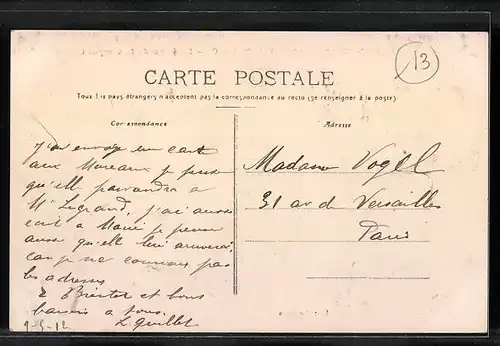 13
CARTE POSTALE
Tous les pays étrangers n'acceptent pas la correspondance au recto (se renseigner à la poste).
Correspondance
Adresse
J'ai envoyé une carte
aux Moreaux je pense
qu'elle parviendra a
Mr Legrand, j'ai aussi
écrit a Marie je pense
aussi qu'elle lui arrivera
car je ne connais pas
les adresses
a Bientot et bons
baisers a tous.
L. Quillet
9-5-12
Madame Vogel
31 av de Versailles
Paris